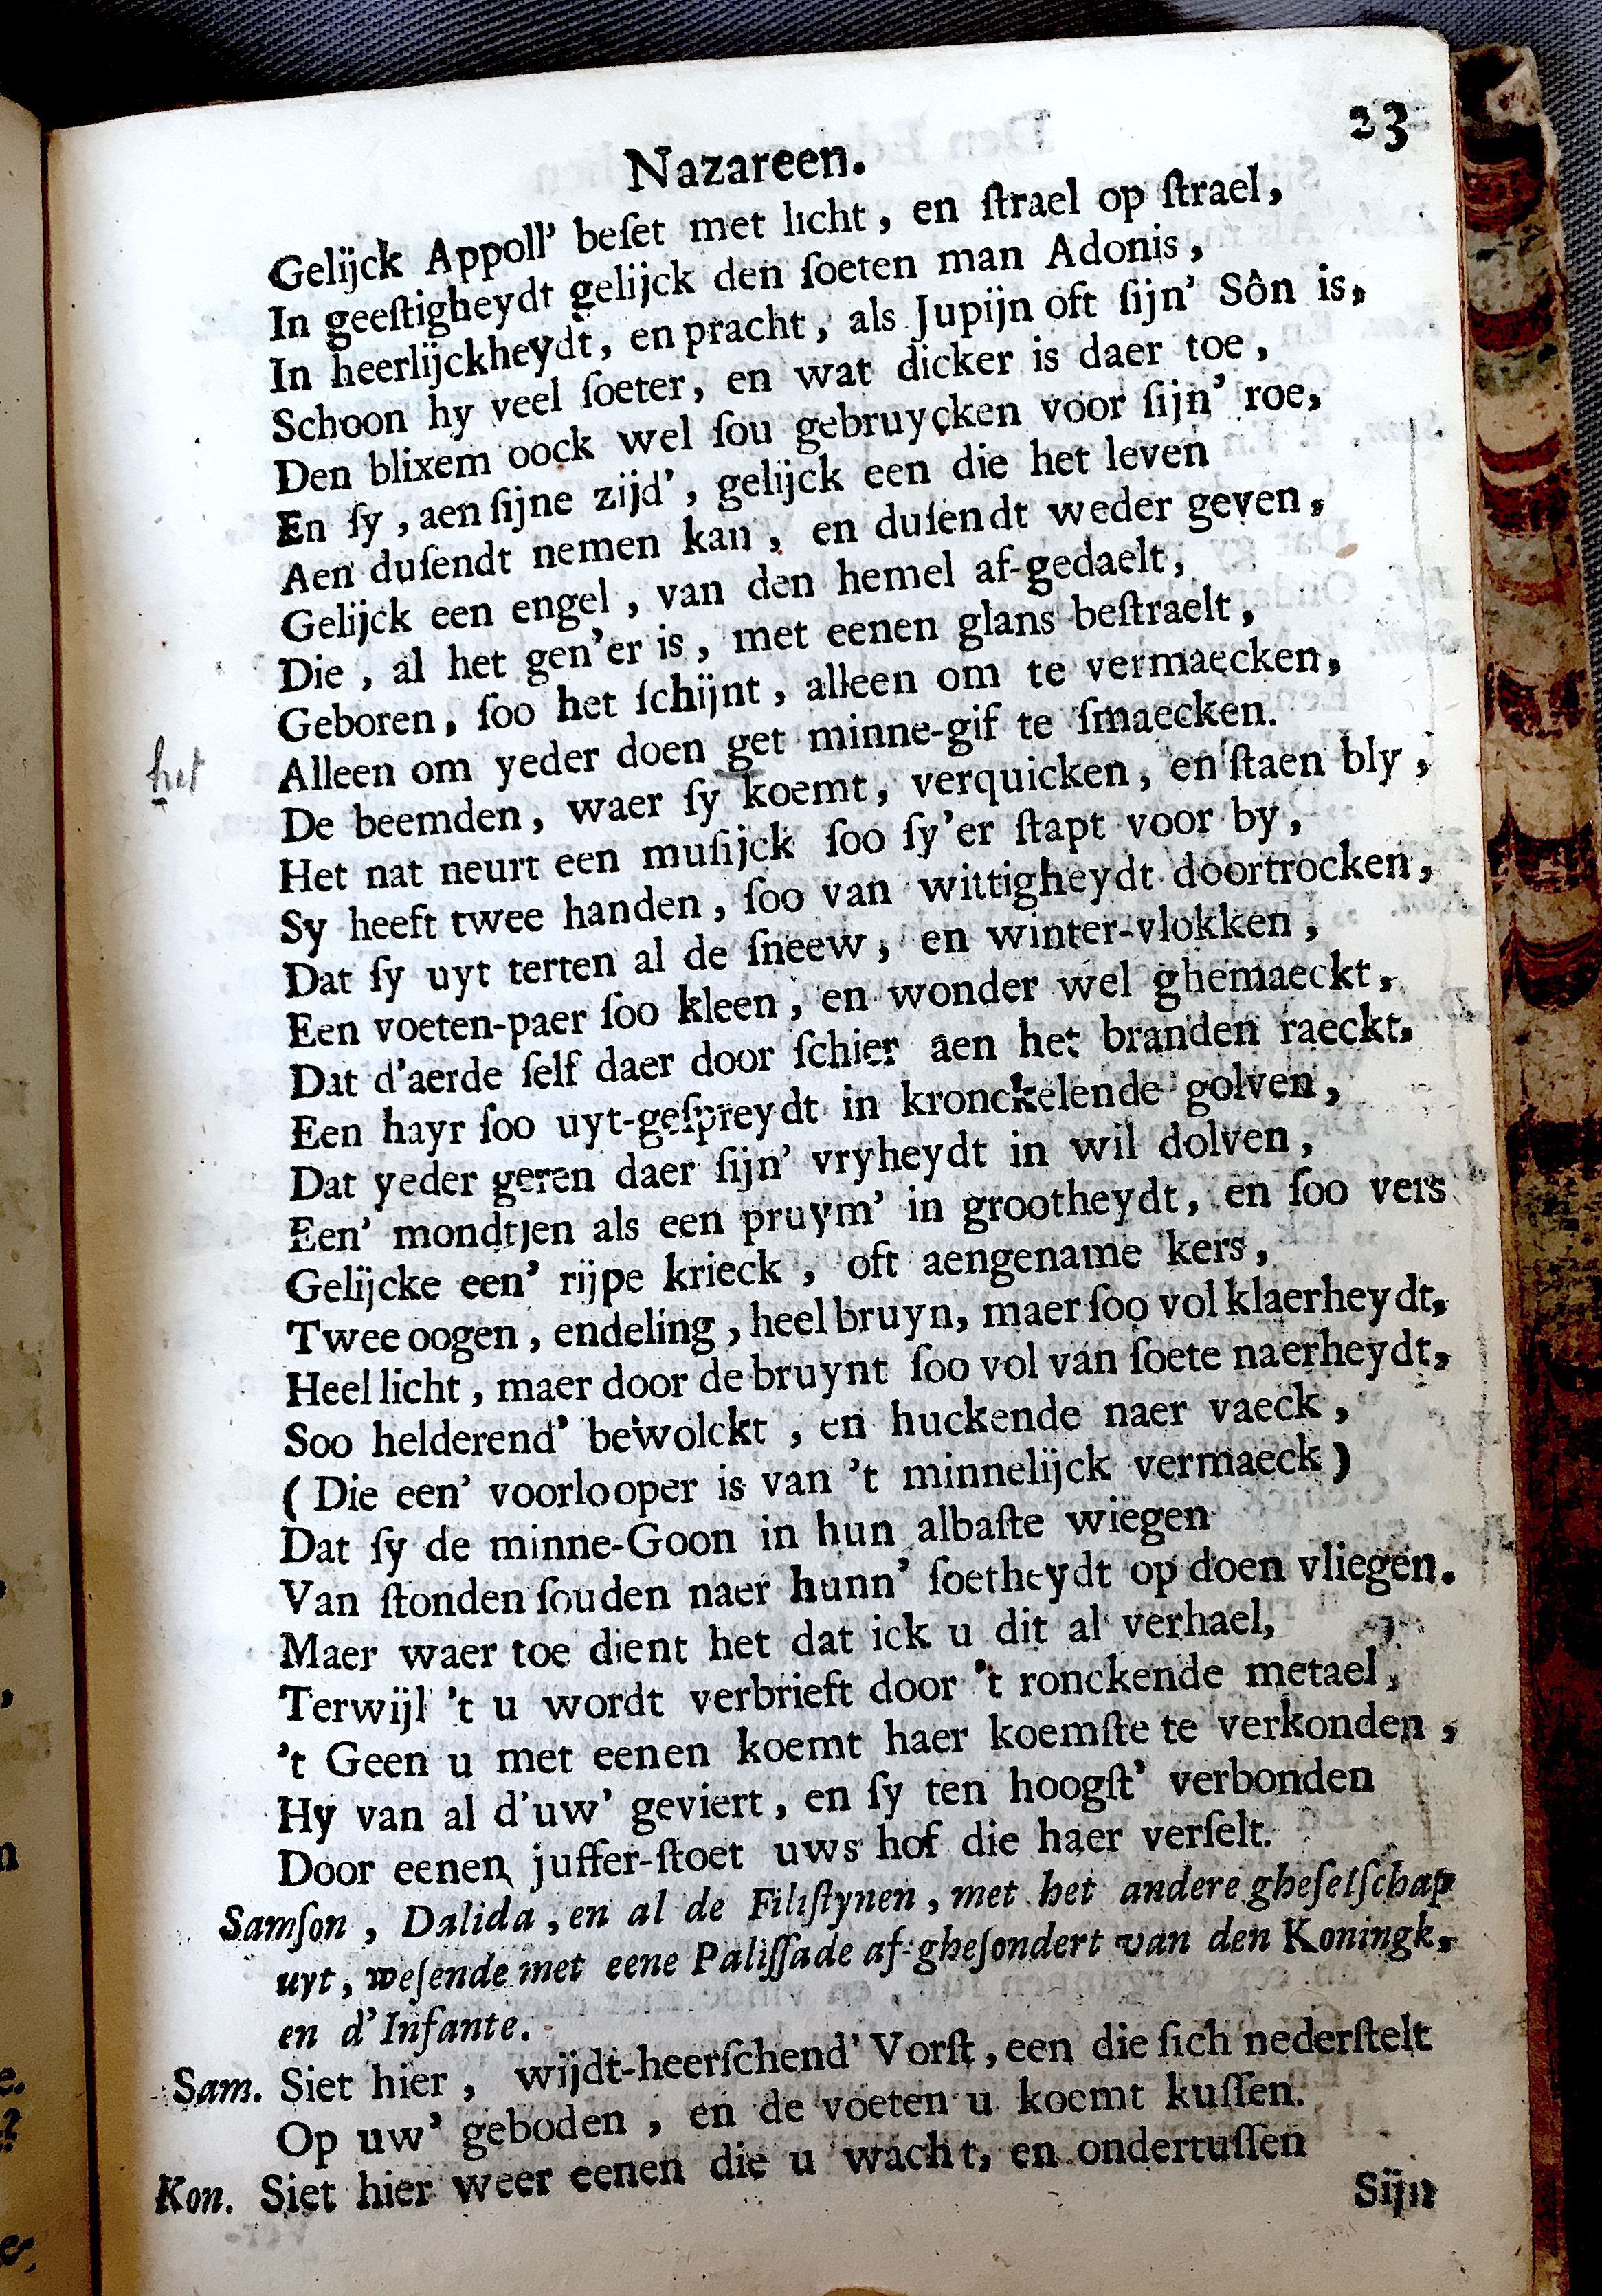 23
Nazareen.
Gelijck Appoll' beſet met licht, en ſtrael op ſtrael,
In geeſtigheydt gelijck den ſoeten man Adonis,
In heerlijckheydt, en pracht, als Jupijn oft ſijn' Sôn is,
Schoon hy veel ſoeter, en wat dicker is daer toe,
Den blixem oock wel ſou gebruycken voor ſijn' roe,
En ſy, aen ſijne zijd', gelijck een die het leven
Aen duſendt nemen kan, en duſendt weder geven,
Gelijck een engel, van den hemel af-gedaelt,
Die, al het gen'er is, met eenen glans beſtraelt,
Geboren, ſoo het ſchijnt, alleen om te vermaecken,
het Alleen om yeder doen get minne-gif te ſmaecken.
De beemden, waer ſy koemt, verquicken, en ſtaen bly,
Het nat neurt een muſijck ſoo ſy'er ſtapt voor by,
Sy heeft twee handen, ſoo van wittigheydt doortrocken,
Dat ſy uyt terten al de ſneew, en winter-vlokken,
Een voeten-paer ſoo kleen, en wonder wel ghemaeckt,
Dat d'aerde ſelf daer door ſchier aen het branden raeckt.
Een hayr ſoo uyt-geſpreydt in kronckelende golven,
Dat yeder geren daer ſijn' vryheydt in wil dolven,
Een' mondtjen als een pruym' in grootheydt, en ſoo vers
Gelijcke een' rijpe krieck, oft aengename kers,
Twee oogen, endeling, heel bruyn, maer ſoo vol klaerheydt,
Heel licht, maer door de bruynt ſoo vol van ſoete naerheydt,
Soo helderend' bewolckt, en huckende naer vaeck,
(Die een' voorlooper is van 't minnelijck vermaeck)
Dat ſy de minne-Goon in hun albaſte wiegen
Van ſtonden ſouden naer hunn' ſoetheydt op doen vliegen.
Maer waer toe dient het dat ick u dit al verhael,
Terwijl 't u wordt verbrieft door 't ronckende metael,
't Geen u met eenen koemt haer koemſte te verkonden,
Hy van al d'uw' geviert, en ſy ten hoogſt' verbonden
Door eenen juffer-ſtoet uws hof die haer verſelt.
Samſon, Dalida, en al de Filiſtynen, met het andere gheſelſchap
uyt, weſende met eene Paliſſade af-gheſondert van den Koningk,
en d'Infante.
Sam. Siet hier, wijdt-heerſchend' Vorſt, een die ſich nederſtelt
Op uw' geboden, en de voeten u koemt kuſſen.
Kon. Siet hier weer eenen die u wacht, en ondertuſſen
Sijn